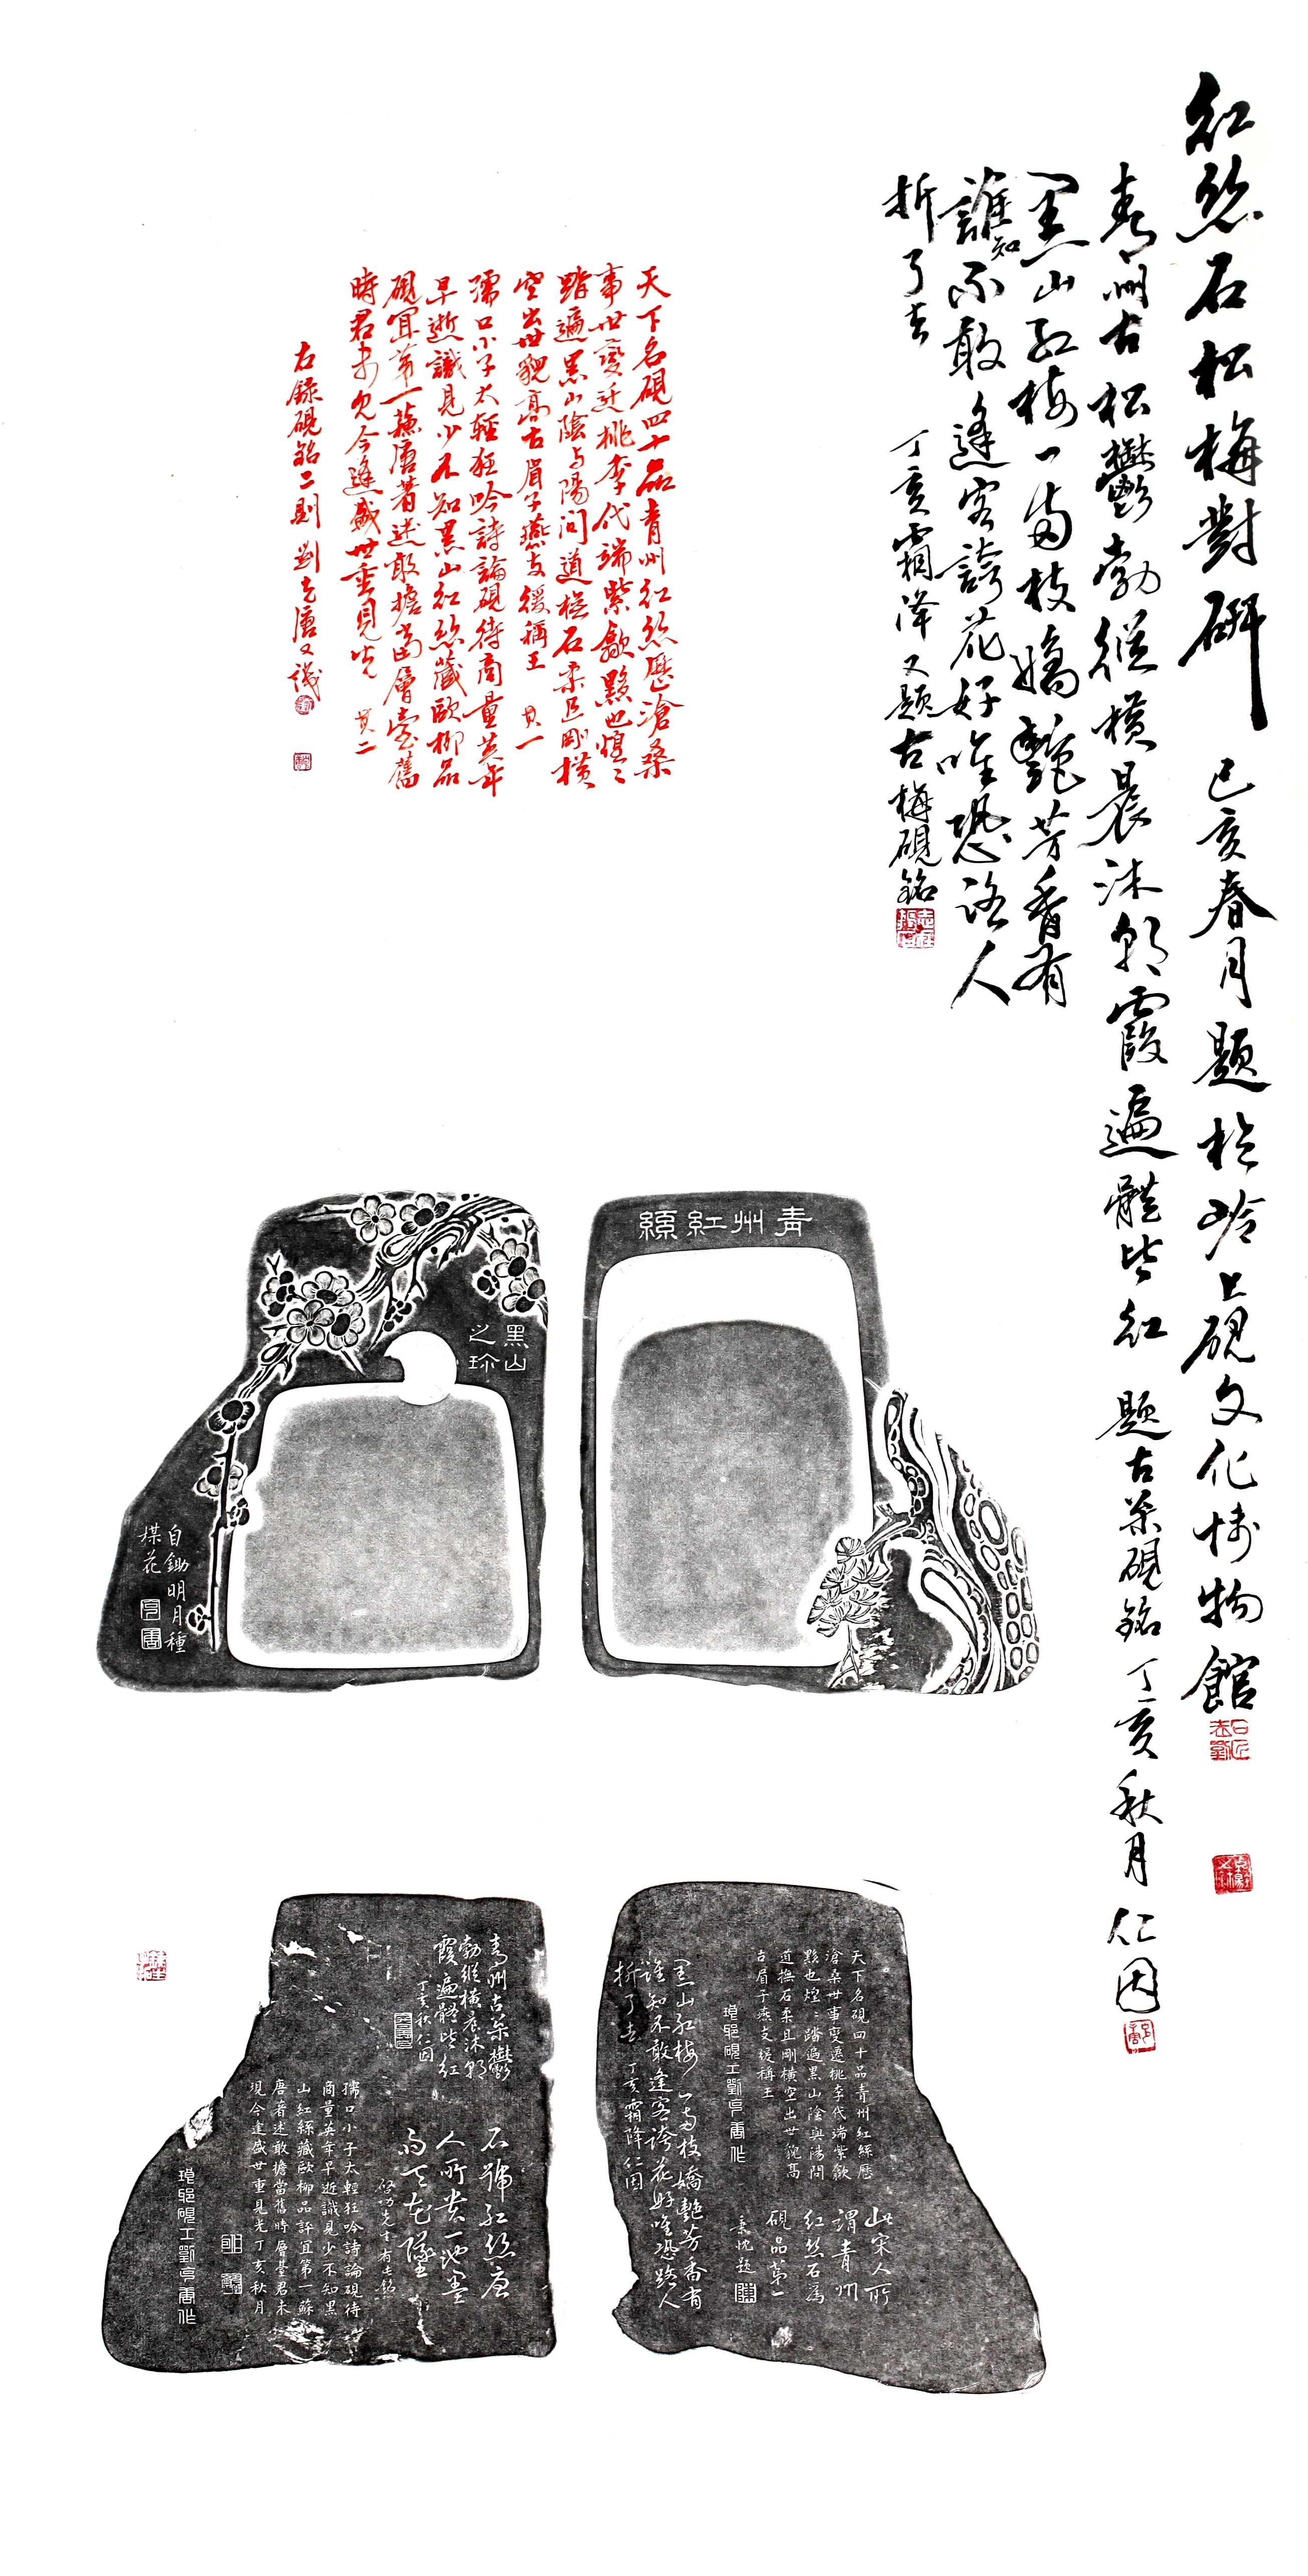 红丝石松梅對研 己亥春月題於岭上硯文化博物館
青州古松鬱勃縱横晨沐朝霞遍體皆红 題古松硯銘 丁亥秋月 仁因
黑山红梅一兩枝嬌艷芳香有
誰知不敢逢客誇花好唯恐路人
折了去 丁亥霜降又題古梅硯銘
天下名硯四十品青州红丝歷滄桑
事世變迁桃李代端紫歙黟也煌々
踏遍黑山陰与陽问道撫石柔且剛横
空出世貌高古眉子燕支缓稱王 其一
孺口小子太輕狂吟詩論硯待商量英年
早逝識見少不知黑山红絲藏歐柳品
硯宜第一蘇唐著述敢擔當層臺舊
時君未見今逢盛世重見光 其二
右録硯銘二則 劉克唐又識
青州紅絲
黑山
之珎
自鋤明月種
楳花
天下名硯四十品青州紅絲歷
滄桑世事變遷桃李代端紫歙
黟也煌々踏遍黑山陰與陽問
道撫石柔且剛横空出世貌高
古眉子燕支缓稱王
琅邪硯工劉克唐作
此宋人所
謂青州
红丝石為
硯品第一
黑山红梅一兩枝嬌艷芳香有
誰知不敢逢客誇花好唯恐路人
折了去 丁亥霜降仁因
青州古松鬱
勃縱横晨沐朝
霞遍體皆红
丁亥秋仁因
石號红丝唐
人所貴一池墨
雨天花墜
啓功先生有此銘
孺口小子太輕狂吟詩論硯待
商量英年早逝識見少不知黑
山紅絲藏歐柳品評宜第一蘇
唐著述敢擔當舊時層臺君未
現今逢盛世重見光丁亥秋月
琅邪硯工劉克唐作